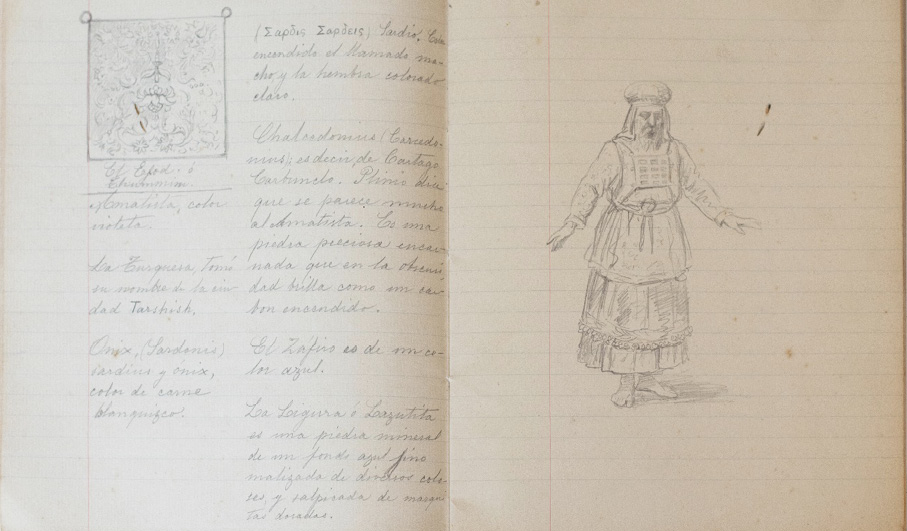 El Efod ó
Thummim.
Amatista, color
violeta.
La Turquesa, tomó
su nombre de la ciu-
dad Tarshish.
Onix, (Sardonis)
sardius y onix,
color de carne
blanquizco.
(Σαρδις Σαρδεις) Sardio.
encendido el llamado ma-
cho, y la hembra colorado
claro.
Chalcedonius (Carcedo-
nius; es decir, de Cartago,
Carbunclo. Plinio dice
que se parece mucho
al Amatista. Es una
piedra preciosa encar-
nada que en la obscuri-
dad brilla como un car-
bon encendido.
El Zafiro es de un co-
lor azul.
La Ligura ó Lazutita
es una piedra mineral
de un fondo azul fino
matizada de diversos colo-
res, y salpicada de manqui-
tas doradas.